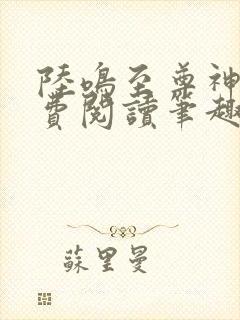 陸鳴至尊神
費閱讀筆趣
蘇里曼